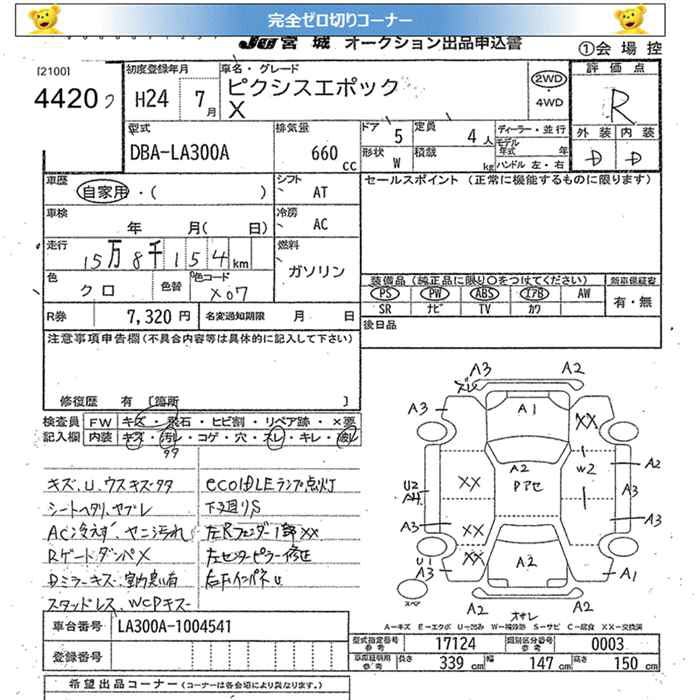 完全ゼロ切りコーナー
JU宮城 オークション出品申込書
①会場控
[2100]
4420
初度登録年月
H24 7月
車名・グレード
ピクシスエポック
X
2WD
4WD
評価点
R
外装 内装
D D
型式
DBA-LA300A
排気量
660 cc
ドア 5
定員 4人
形状 W
積載 kg
ディーラー・並行
モデル年式 年
ハンドル 左・右
車歴
自家用・( )
シフト
AT
セールスポイント (正常に機能するものに限ります)
車検
年 月( 日)
冷房
AC
走行
15万8千154km
燃料
ガソリン
色
クロ
色替
色コード
X07
装備品 (純正品に限り○をつけてください)
PS PW ABS エアB AW
SR ナビ TV カワ
新車保証書
有・無
R券 7,320円
名変通知期限 月 日
後日品
注意事項申告欄(不具合内容等は具体的に記入して下さい)
修復歴 有 [箇所 ]
検査員記入欄
FW キズ・飛石・ヒビ割・リペア跡・×要
内装 キズ・汚レ・コゲ・穴・スレ・キレ・破レ
キズ、U、ウスキズタタ
シートヘタリ、ヤブレ
AC冷えず、ヤニ汚れ
RゲートダンパX
Dミラーキズ、室内臭い有
スタッドレス、WCPキズー
eco IDLEランプ点灯
下廻りS
左Rフェンダー1部XX
左センターピラー修正
右FインパネU
A3 A2
ズレ
A3 A1 XX
A2 W2 A2
XX Pアセ
U2
A4 A3
A3 XX A3
U1 XX A2
A3 A1
A2
スペア
オサレ
A-キズ E-エクボ U-凹み W-補修跡 S-サビ C-腐食 XX-交換済
車台番号 LA300A-1004541
登録番号
型式指定番号 参考 17124
類別区分番号 参考 0003
車庫証明用 参考 長さ 339 cm 幅 147 cm 高さ 150 cm
希望出品コーナー (コーナーは各会場により異なります。)